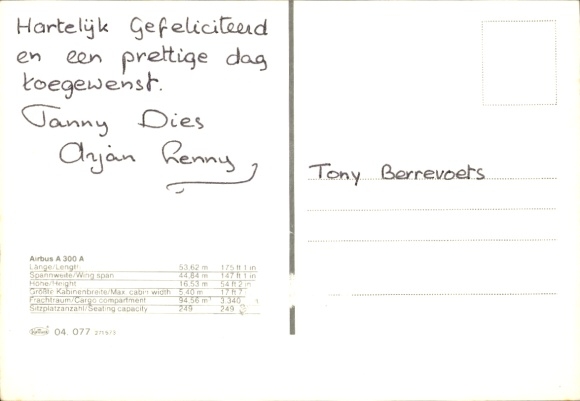 Hartelijk Gefeliciteerd
en een prettige dag
toegewenst.
Tanny Dies
Arjan Lenny
Tony Berrevoets
Airbus A 300 A
Länge/Length 53,62 m 175 ft 1 in
Spannweite/Wing span 44,84 m 147 ft 1 in
Höhe/Height 16,53 m 54 ft 2 in
Größte Kabinenbreite/Max. cabin width 5,40 m 17 ft 7
Frachtraum/Cargo compartment 94,56 m³ 3.340
Sitzplatzanzahl/Seating capacity 249 249
04. 077